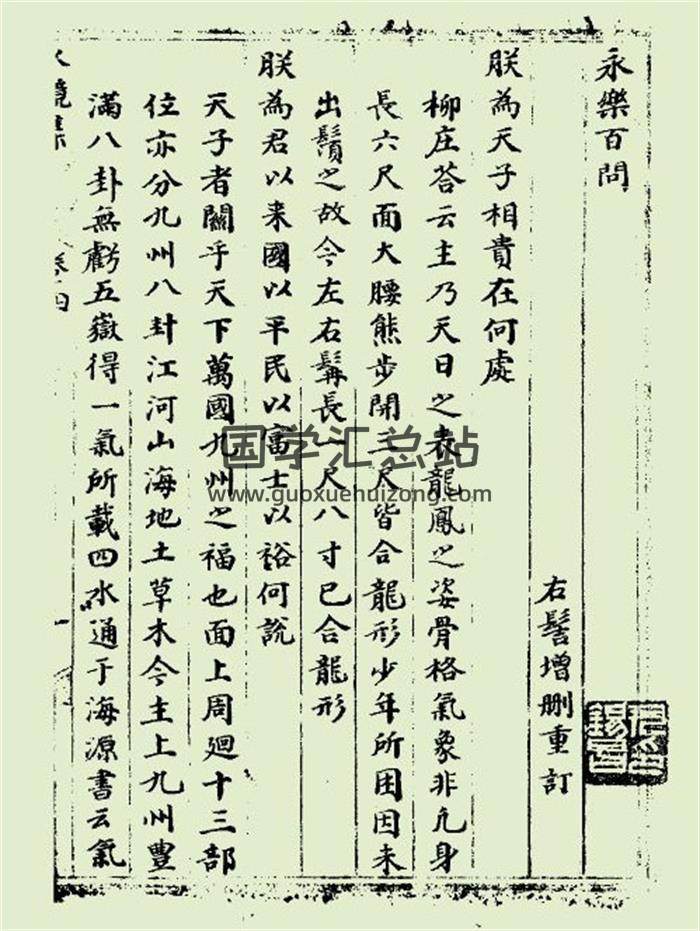 永樂百問
右髻增删重訂
朕為天子相貴在何處
柳庄荅云主乃天日之表龍鳳之姿骨格氣象非凢身
長六尺面大腰熊步開三尺皆合龍形少年所困因未
出鬚之故今左右髯長一尺八寸已合龍形
朕為君以来國以平民以富士以裕何說
天子者關乎天下萬國九州之福也面上周廻十三部
位亦分九州八卦江河山海地土草木今主上九州豊
滿八卦無虧五嶽得一氣所載四水通于海源書云氣
水鏡集 卷四 一
国学汇总站
www.guoxuehuizong.com